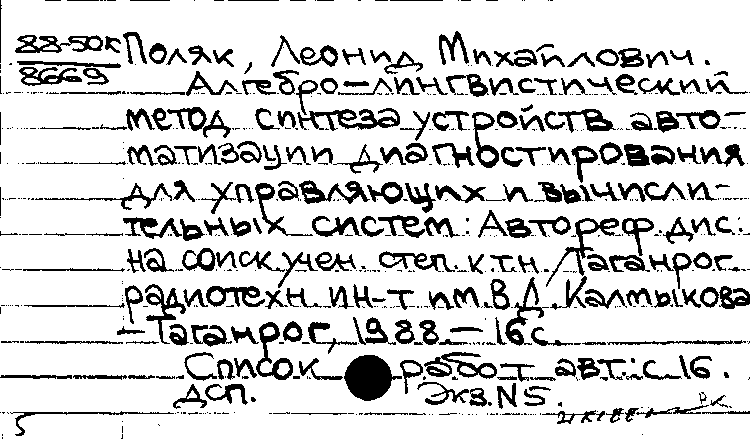 88-50К Поляк, Леонид Михайлович.
8669
Алгебро-лингвистический
метод синтеза устройств авто-
матизации диагностирования
для управляющих и вычисли-
тельных систем: Автореф. дис.
на соиск. учен. степ. к.т.н. / Таганрог.
радиотехн. ин-т им. В.Д. Калмыкова
– Таганрог, 1988. – 16 с.
Список работ авт.: с. 16.
ДСП. Экз. N5.
РК
5